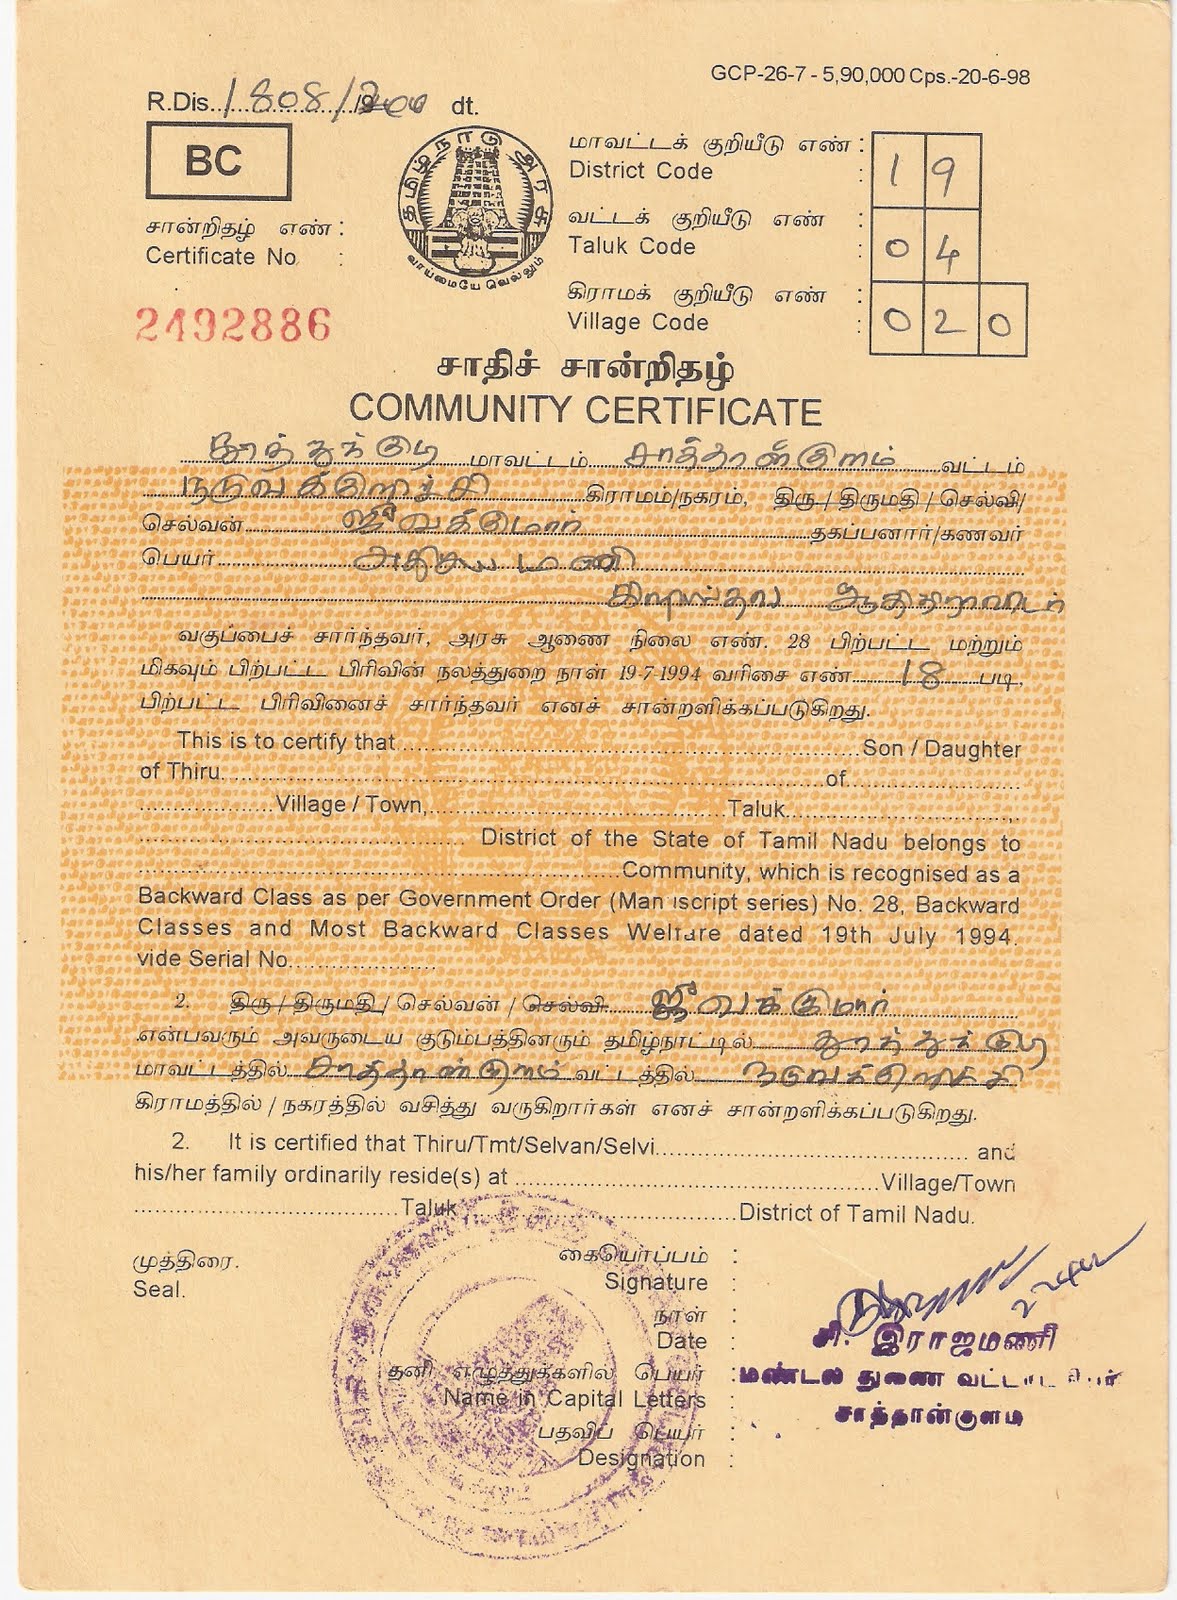 GCP-26-7 - 5,90,000 Cps.-20-6-98
R.Dis. 1808/ dt.
BC
தமிழ்நாடு அரசு
வாய்மையே வெல்லும்
மாவட்டக் குறியீடு எண் : 1 9
District Code :
சான்றிதழ் எண் :
Certificate No :
வட்டக் குறியீடு எண் : 0 4
Taluk Code :
கிராமக் குறியீடு எண் : 0 2 0
Village Code :
2492886
சாதிச் சான்றிதழ்
COMMUNITY CERTIFICATE
தூத்துக்குடி மாவட்டம் சாத்தான்குளம் வட்டம்
நடுவக்குறிச்சி கிராமம்/நகரம், திரு / திருமதி / செல்வி/
செல்வன் ஜீவகுமார் தகப்பனார்/கணவர்
பெயர் மணி
கிறிஸ்தவ ஆதிதிராவிடர்
வகுப்பைச் சார்ந்தவர், அரசு ஆணை நிலை எண். 28 பிற்பட்ட மற்றும்
மிகவும் பிற்பட்ட பிரிவின் நலத்துறை நாள் 19-7-1994 வரிசை எண் 18 படி,
பிற்பட்ட பிரிவினைச் சார்ந்தவர் எனச் சான்றளிக்கப்படுகிறது.
This is to certify that Son / Daughter
of Thiru. of
Village / Town, Taluk
District of the State of Tamil Nadu belongs to
Community, which is recognised as a
Backward Class as per Government Order (Manuscript series) No. 28, Backward
Classes and Most Backward Classes Welfare dated 19th July 1994.
vide Serial No.
2. திரு / திருமதி / செல்வன் / செல்வி ஜீவக்குமார்
என்பவரும் அவருடைய குடும்பத்தினரும் தமிழ்நாட்டில் தூத்துக்குடி
மாவட்டத்தில் சாத்தான்குளம் வட்டத்தில் நடுவக்குறிச்சி
கிராமத்தில் / நகரத்தில் வசித்து வருகிறார்கள் எனச் சான்றளிக்கப்படுகிறது.
2. It is certified that Thiru/Tmt/Selvan/Selvi and
his/her family ordinarily reside(s) at Village/Town
Taluk District of Tamil Nadu.
முத்திரை.
Seal.
கையொப்பம் :
Signature :
நாள் :
Date :
சி. இராஜமணி
தனி எழுத்துக்களில் பெயர் :
மண்டல துணை
Name in Capital Letters :
சாத்தான்குளம்
பதவிப் பெயர் :
Designation :